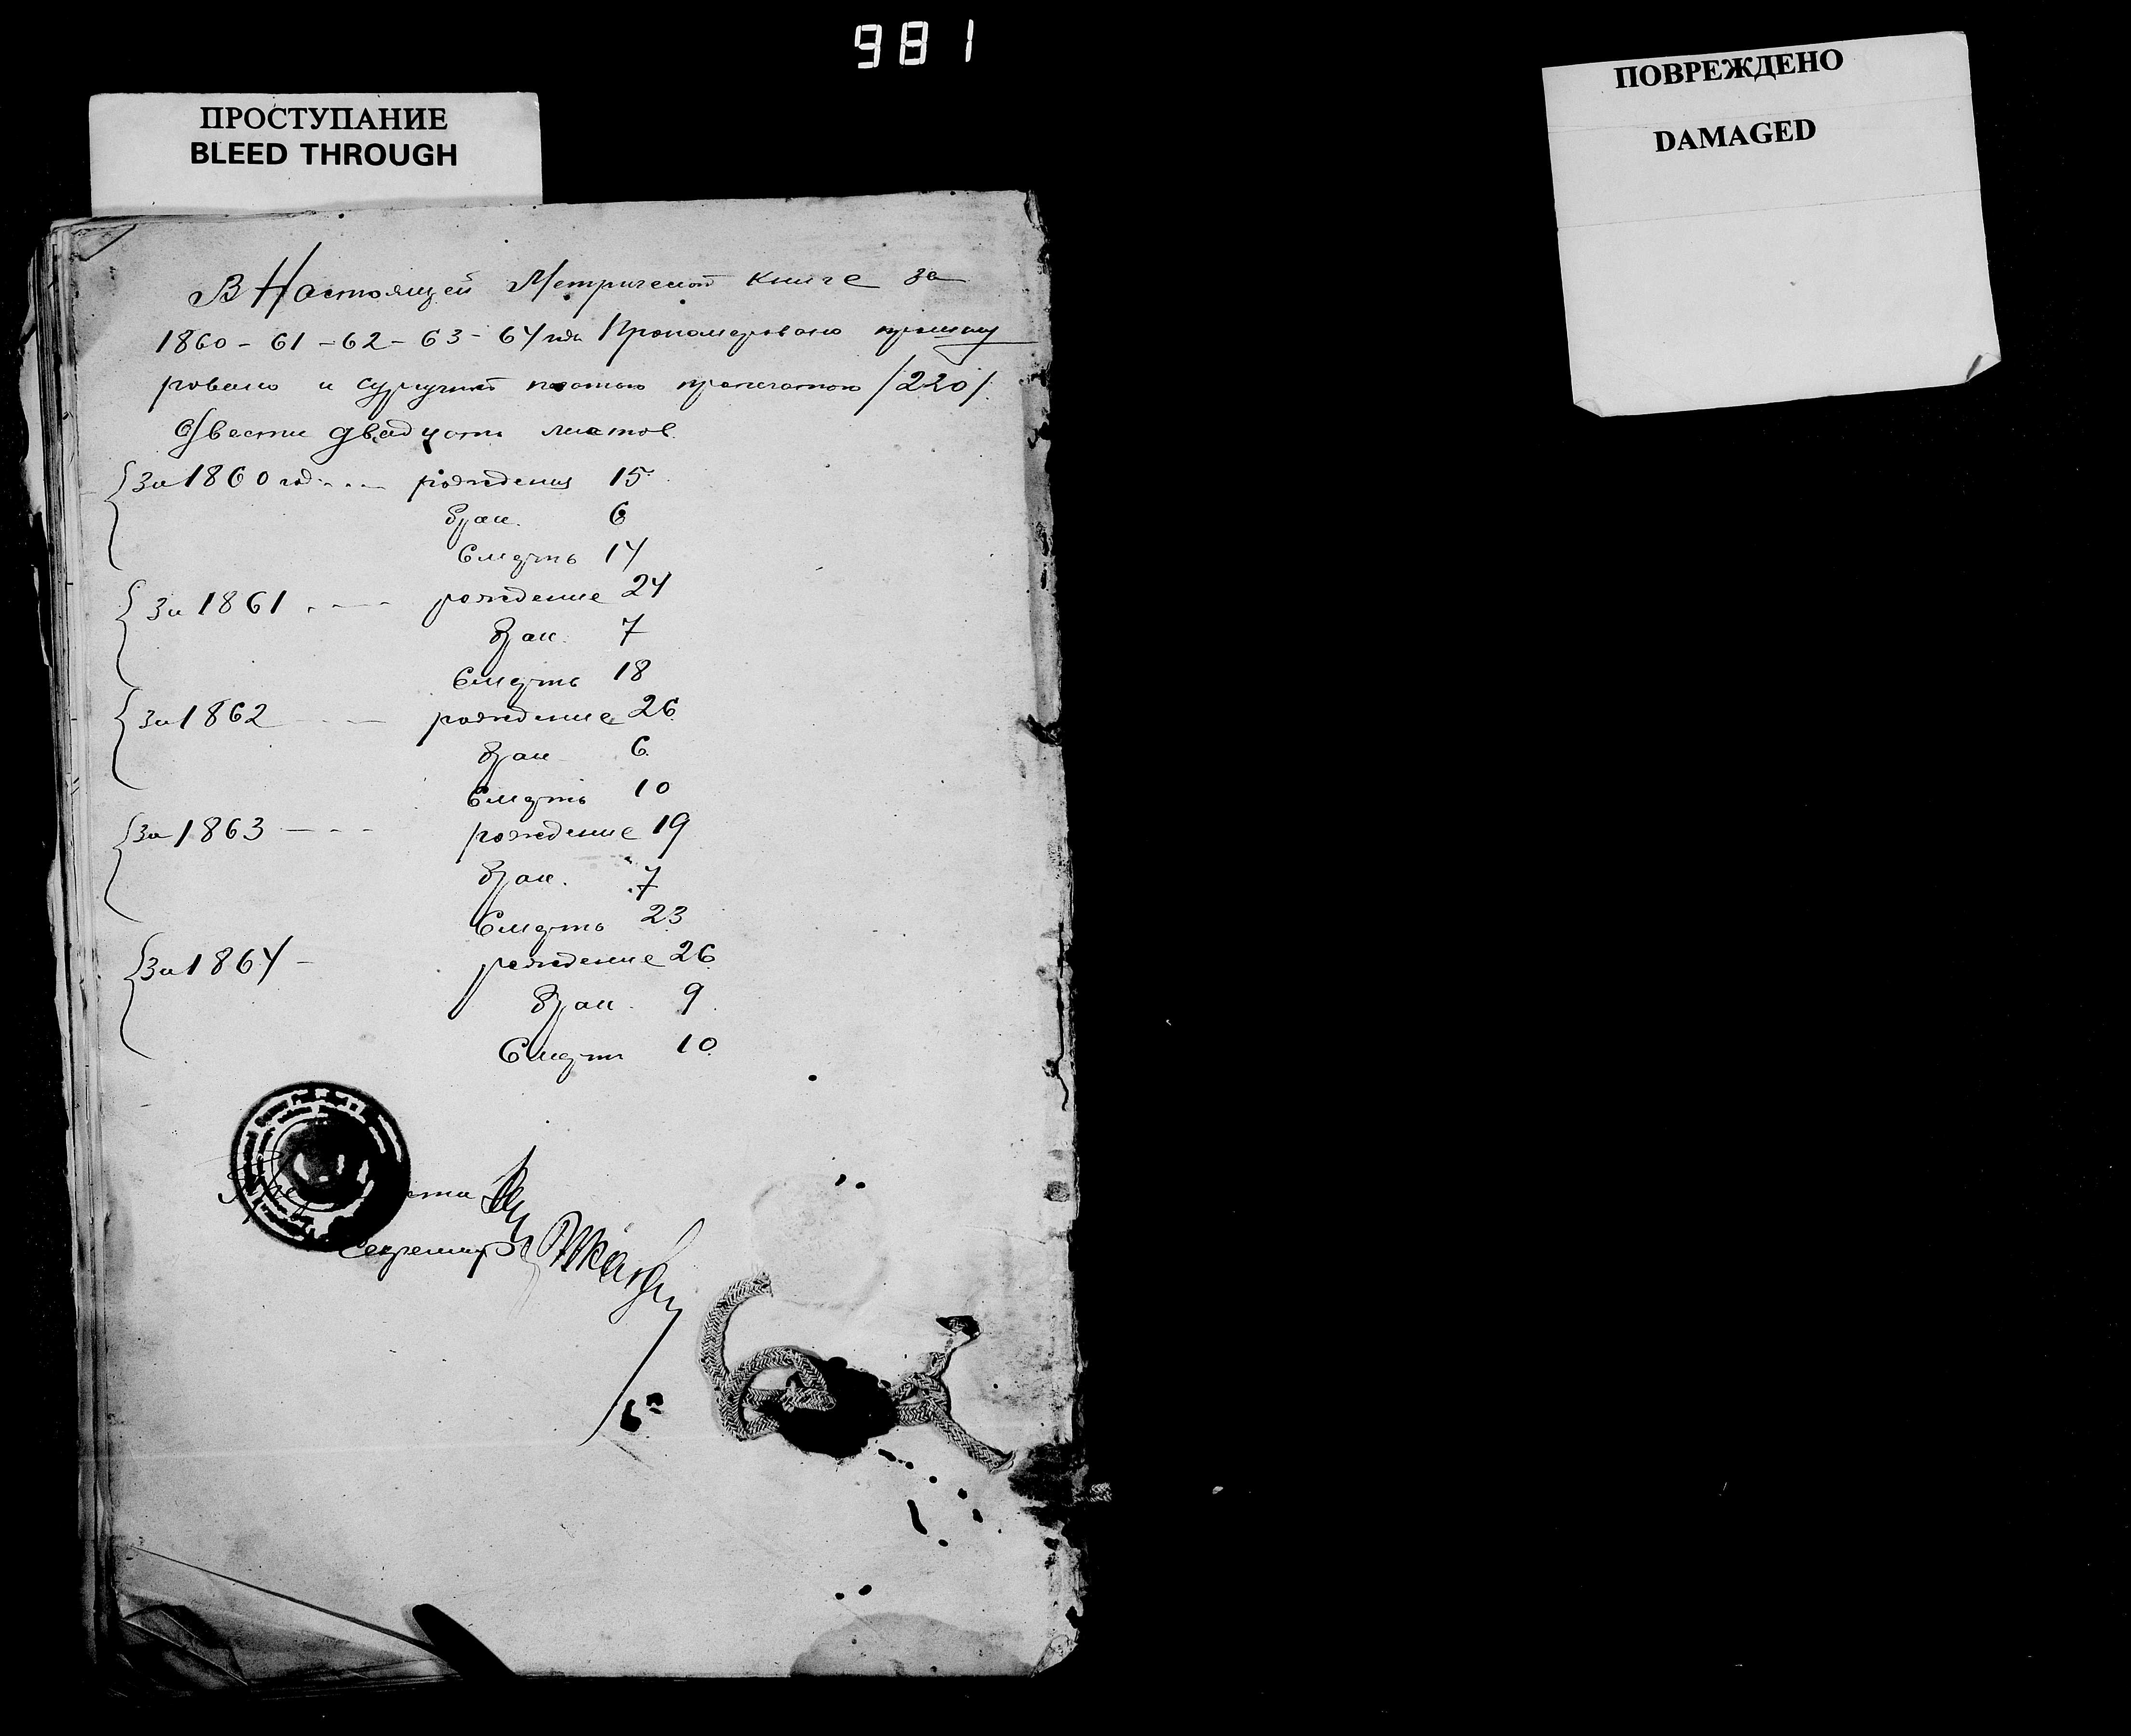 981
ПРОСТУПАНИЕ
BLEED THROUGH
ПОВРЕЖДЕНО
DAMAGED
В Настоящей Метрической книге за
1860 - 61 - 62 - 63 - 64 год Прономеровано прошну
ровано и сургучной печатью припечатано /220/.
Двести двадцать листов.
За 1860 год - - - рождения 15
брак. 6
Смерть 14
За 1861 - - - рождение 24
брак. 7
Смерть 18
За 1862 - - рождение 26
брак 6
Смерть 10
За 1863 - - - рождение 19
брак. 7
Смерть 23
За 1864 - рождение 26
брак. 9
Смерть 10
Секретарь